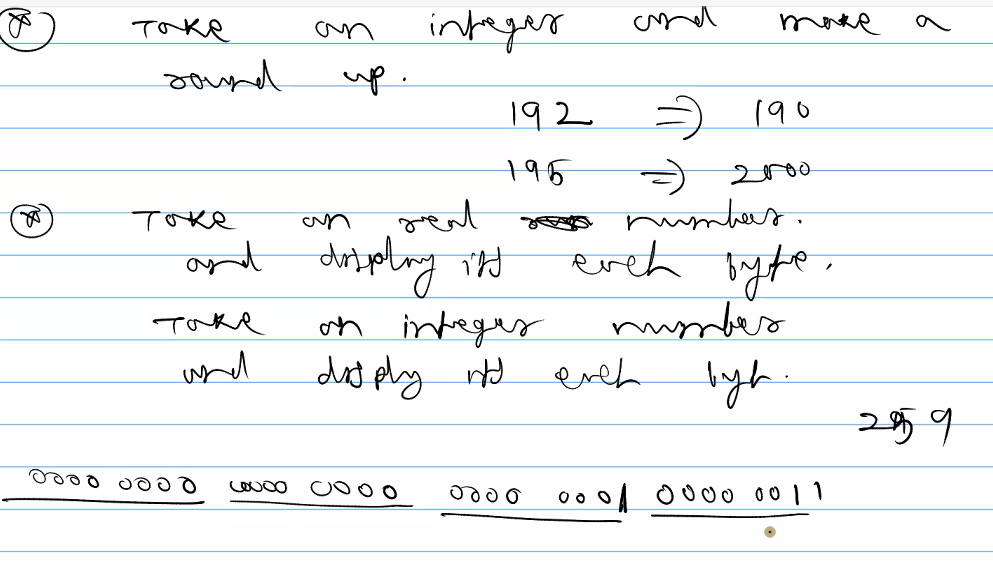 Take an integer and make a
round up.
192 ⇒ 190
195 ⇒ 2000
Take an real number.
and display its each byte.
Take an integer number
and disply its each byte.
259
0000 0000 0000 0000 0000 0001 0000 0011